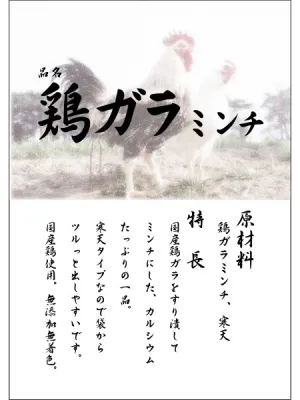 品名
鶏ガラミンチ
原材料
鶏ガラミンチ、寒天
特長
国産鶏ガラをすり潰して
ミンチにした、カルシウム
たっぷりの一品。
寒天タイプなので袋から
ツルっと出しやすいです。
国産鶏使用。無添加無着色。